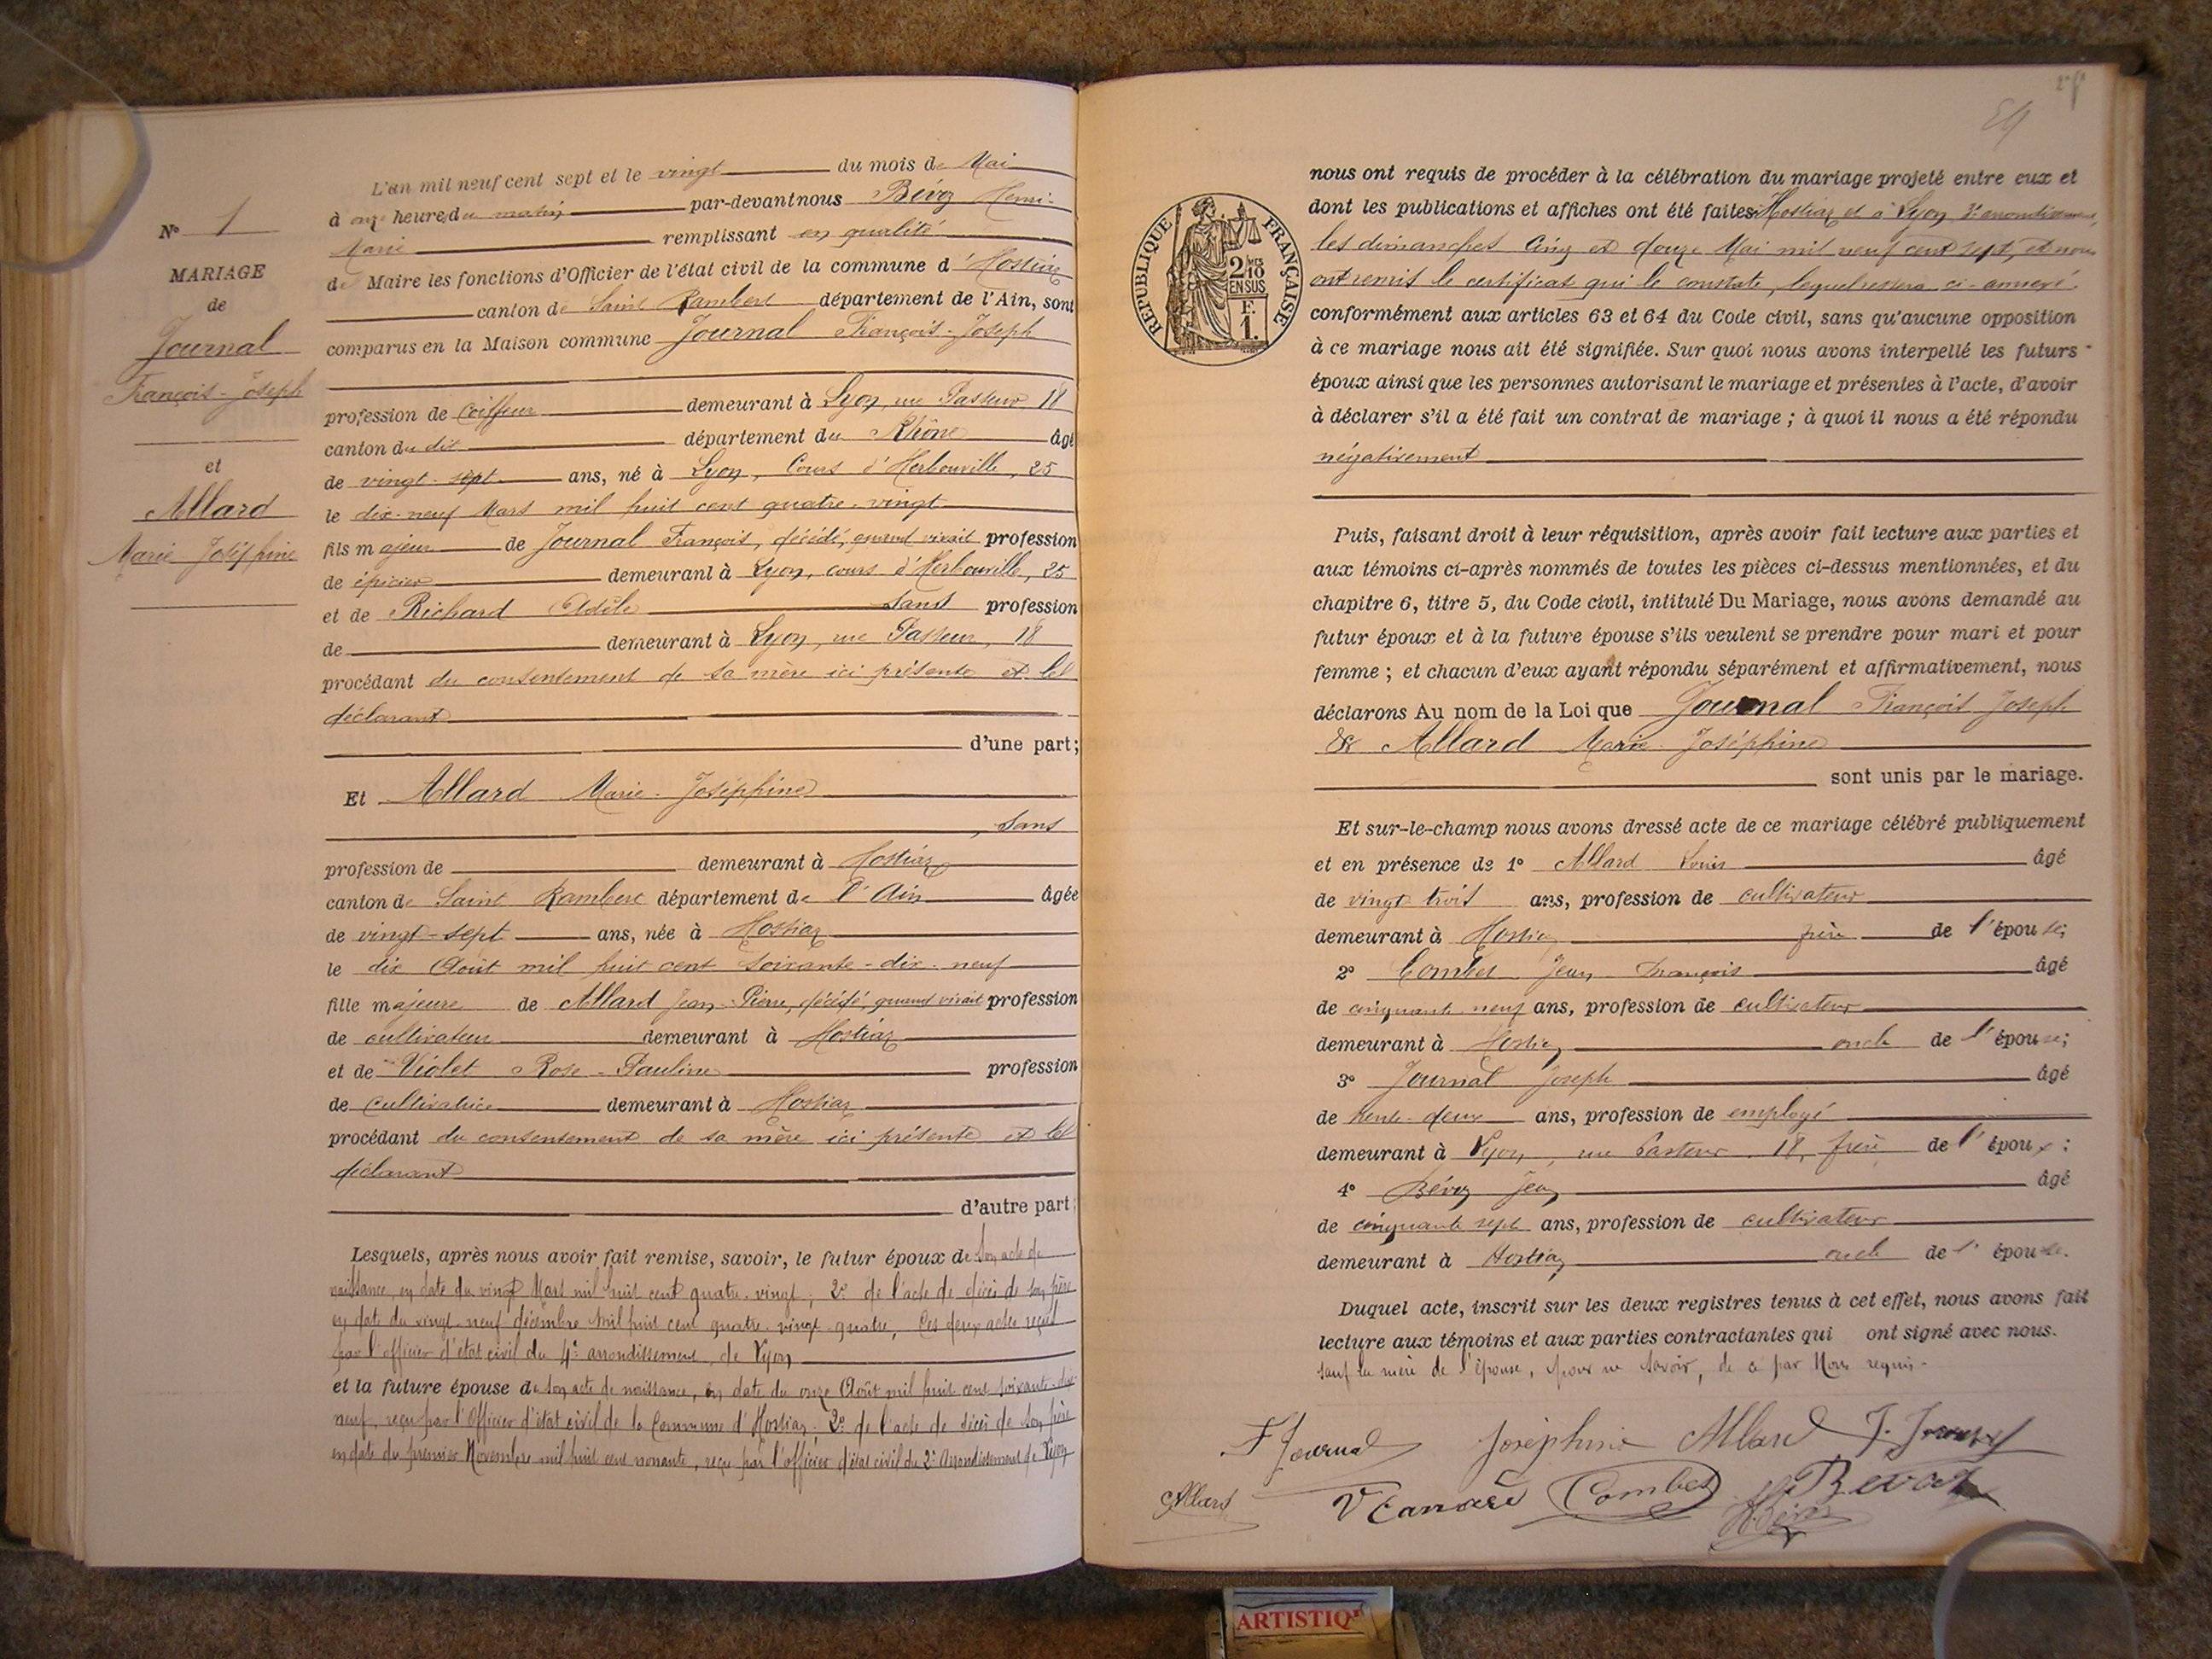 L'an mil neuf cent sept et le vingt du mois de Mai
à onze heures du matin par-devant nous Bévoz Henri-
Marie remplissant en qualité
de Maire les fonctions d'Officier de l'état civil de la commune d'Hostiaz
canton de Saint Rambert département de l'Ain, sont
comparus en la Maison commune Journal François-Joseph
profession de coiffeur demeurant à Lyon, rue Pasteur 18
canton du dit département du Rhône âgé
de vingt-sept ans, né à Lyon, Cours d'Herbouville, 25
le dix-neuf Mars mil huit cent quatre-vingt
fils majeur de Journal François, décédé, quand vivait profession
de épicier demeurant à Lyon, cours d'Herbouville, 25
et de Richard Adèle sans profession
de demeurant à Lyon, rue Pasteur, 18
procédant du consentement de sa mère ici présente et le
déclarant
d'une part;
Et Allard Marie-Joséphine
, sans
profession de demeurant à Hostiaz
canton de Saint Rambert département de l'Ain âgée
de vingt-sept ans, née à Hostiaz
le dix Août mil huit cent soixante-dix-neuf
fille majeure de Allard Jean-Pierre, décédé, quand vivait profession
de cultivateur demeurant à Hostiaz
et de Violet Rose-Pauline profession
de cultivatrice demeurant à Hostiaz
procédant du consentement de sa mère ici présente et le
déclarant
d'autre part;
Lesquels, après nous avoir fait remise, savoir, le futur époux de son acte de
naissance, en date du vingt Mars mil huit cent quatre-vingt; 2° de l'acte de décès de son père
en date du vingt-neuf décembre mil huit cent quatre-vingt-quatre, Ces deux actes reçus
par l'officier d'état civil du 4e arrondissement de Lyon
et la future épouse de son acte de naissance, en date du onze Août mil huit cent soixante-dix-
neuf, reçu par l'Officier d'état civil de la Commune d'Hostiaz; 2° de l'acte de décès de son père
en date du premier Novembre mil huit cent nonante, reçu par l'officier d'état civil du 2e Arrondissement de Lyon
N° 1
MARIAGE
de
Journal
François-Joseph
et
Allard
Marie-Joséphine
RÉPUBLIQUE FRANÇAISE
2/10
EN SUS
F.
1.
nous ont requis de procéder à la célébration du mariage projeté entre eux et
dont les publications et affiches ont été faites Hostiaz et à Lyon arrondissement,
les dimanches Cinq et douze Mai mil neuf cent sept, et nous
ont remis le certificat qui le constate, lequel restera ci-annexé.
conformément aux articles 63 et 64 du Code civil, sans qu'aucune opposition
à ce mariage nous ait été signifiée. Sur quoi nous avons interpellé les futurs
époux ainsi que les personnes autorisant le mariage et présentes à l'acte, d'avoir
à déclarer s'il a été fait un contrat de mariage; à quoi il nous a été répondu
négativement
Puis, faisant droit à leur réquisition, après avoir fait lecture aux parties et
aux témoins ci-après nommés de toutes les pièces ci-dessus mentionnées, et du
chapitre 6, titre 5, du Code civil, intitulé Du Mariage, nous avons demandé au
futur époux et à la future épouse s'ils veulent se prendre pour mari et pour
femme; et chacun d'eux ayant répondu séparément et affirmativement, nous
déclarons Au nom de la Loi que Journal François Joseph
& Allard Marie-Joséphine
sont unis par le mariage.
Et sur-le-champ nous avons dressé acte de ce mariage célébré publiquement
et en présence de 1° Allard Louis âgé
de vingt trois ans, profession de cultivateur
demeurant à Hostiaz frère de l'épouse;
2° Combet Jean François âgé
de cinquante neuf ans, profession de cultivateur
demeurant à Hostiaz oncle de l'épouse;
3° Journal Joseph âgé
de trente-deux ans, profession de employé
demeurant à Lyon, rue Pasteur 18, frère de l'époux;
4° Bévoz Jean âgé
de cinquante sept ans, profession de cultivateur
demeurant à Hostiaz oncle de l'épouse.
Duquel acte, inscrit sur les deux registres tenus à cet effet, nous avons fait
lecture aux témoins et aux parties contractantes qui ont signé avec nous.
sauf la mère de l'épouse, pour ne savoir, de ce par Nous requis-
F Journal Joséphine Allard J. Journal
Allard Combet Bevoz
HBévoz
ARTISTIQ